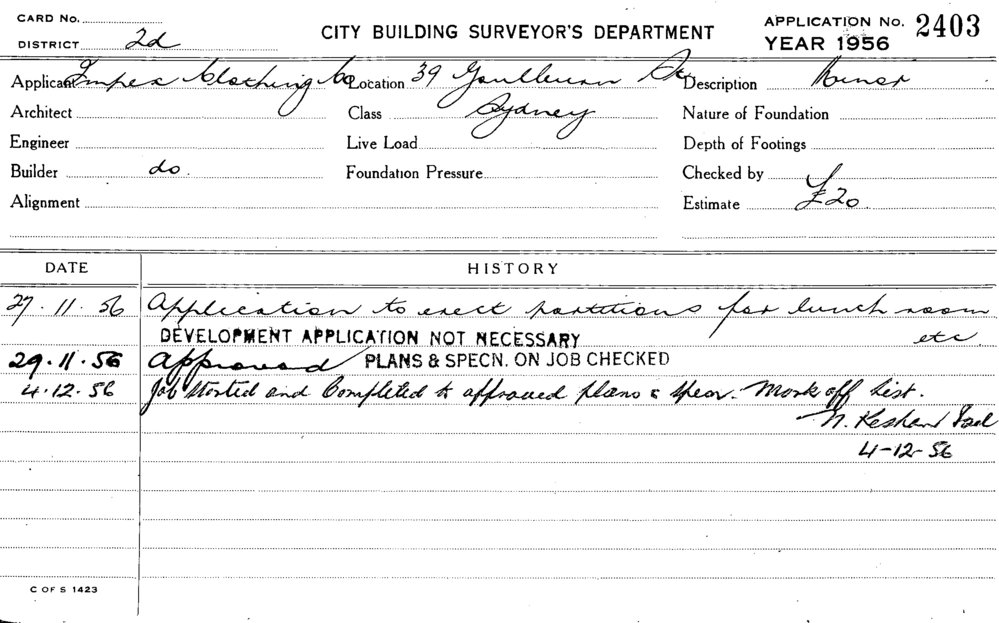 CARD No.
DISTRICT 2d
CITY BUILDING SURVEYOR'S DEPARTMENT
APPLICATION No. 2403
YEAR 1956
Applicant Impex Clothing Co Location 39 Goulburn St Description Minor
Architect Class Sydney Nature of Foundation
Engineer Live Load Depth of Footings
Builder do. Foundation Pressure Checked by
Alignment Estimate £20
DATE HISTORY
27.11.56 Application to erect partitions for lunch room
DEVELOPMENT APPLICATION NOT NECESSARY etc
29.11.56 Approved PLANS & SPECN. ON JOB CHECKED
4.12.56 Job Started and Completed to approved plans & specn. Mark off List.
N.
4-12-56
C OF S 1423